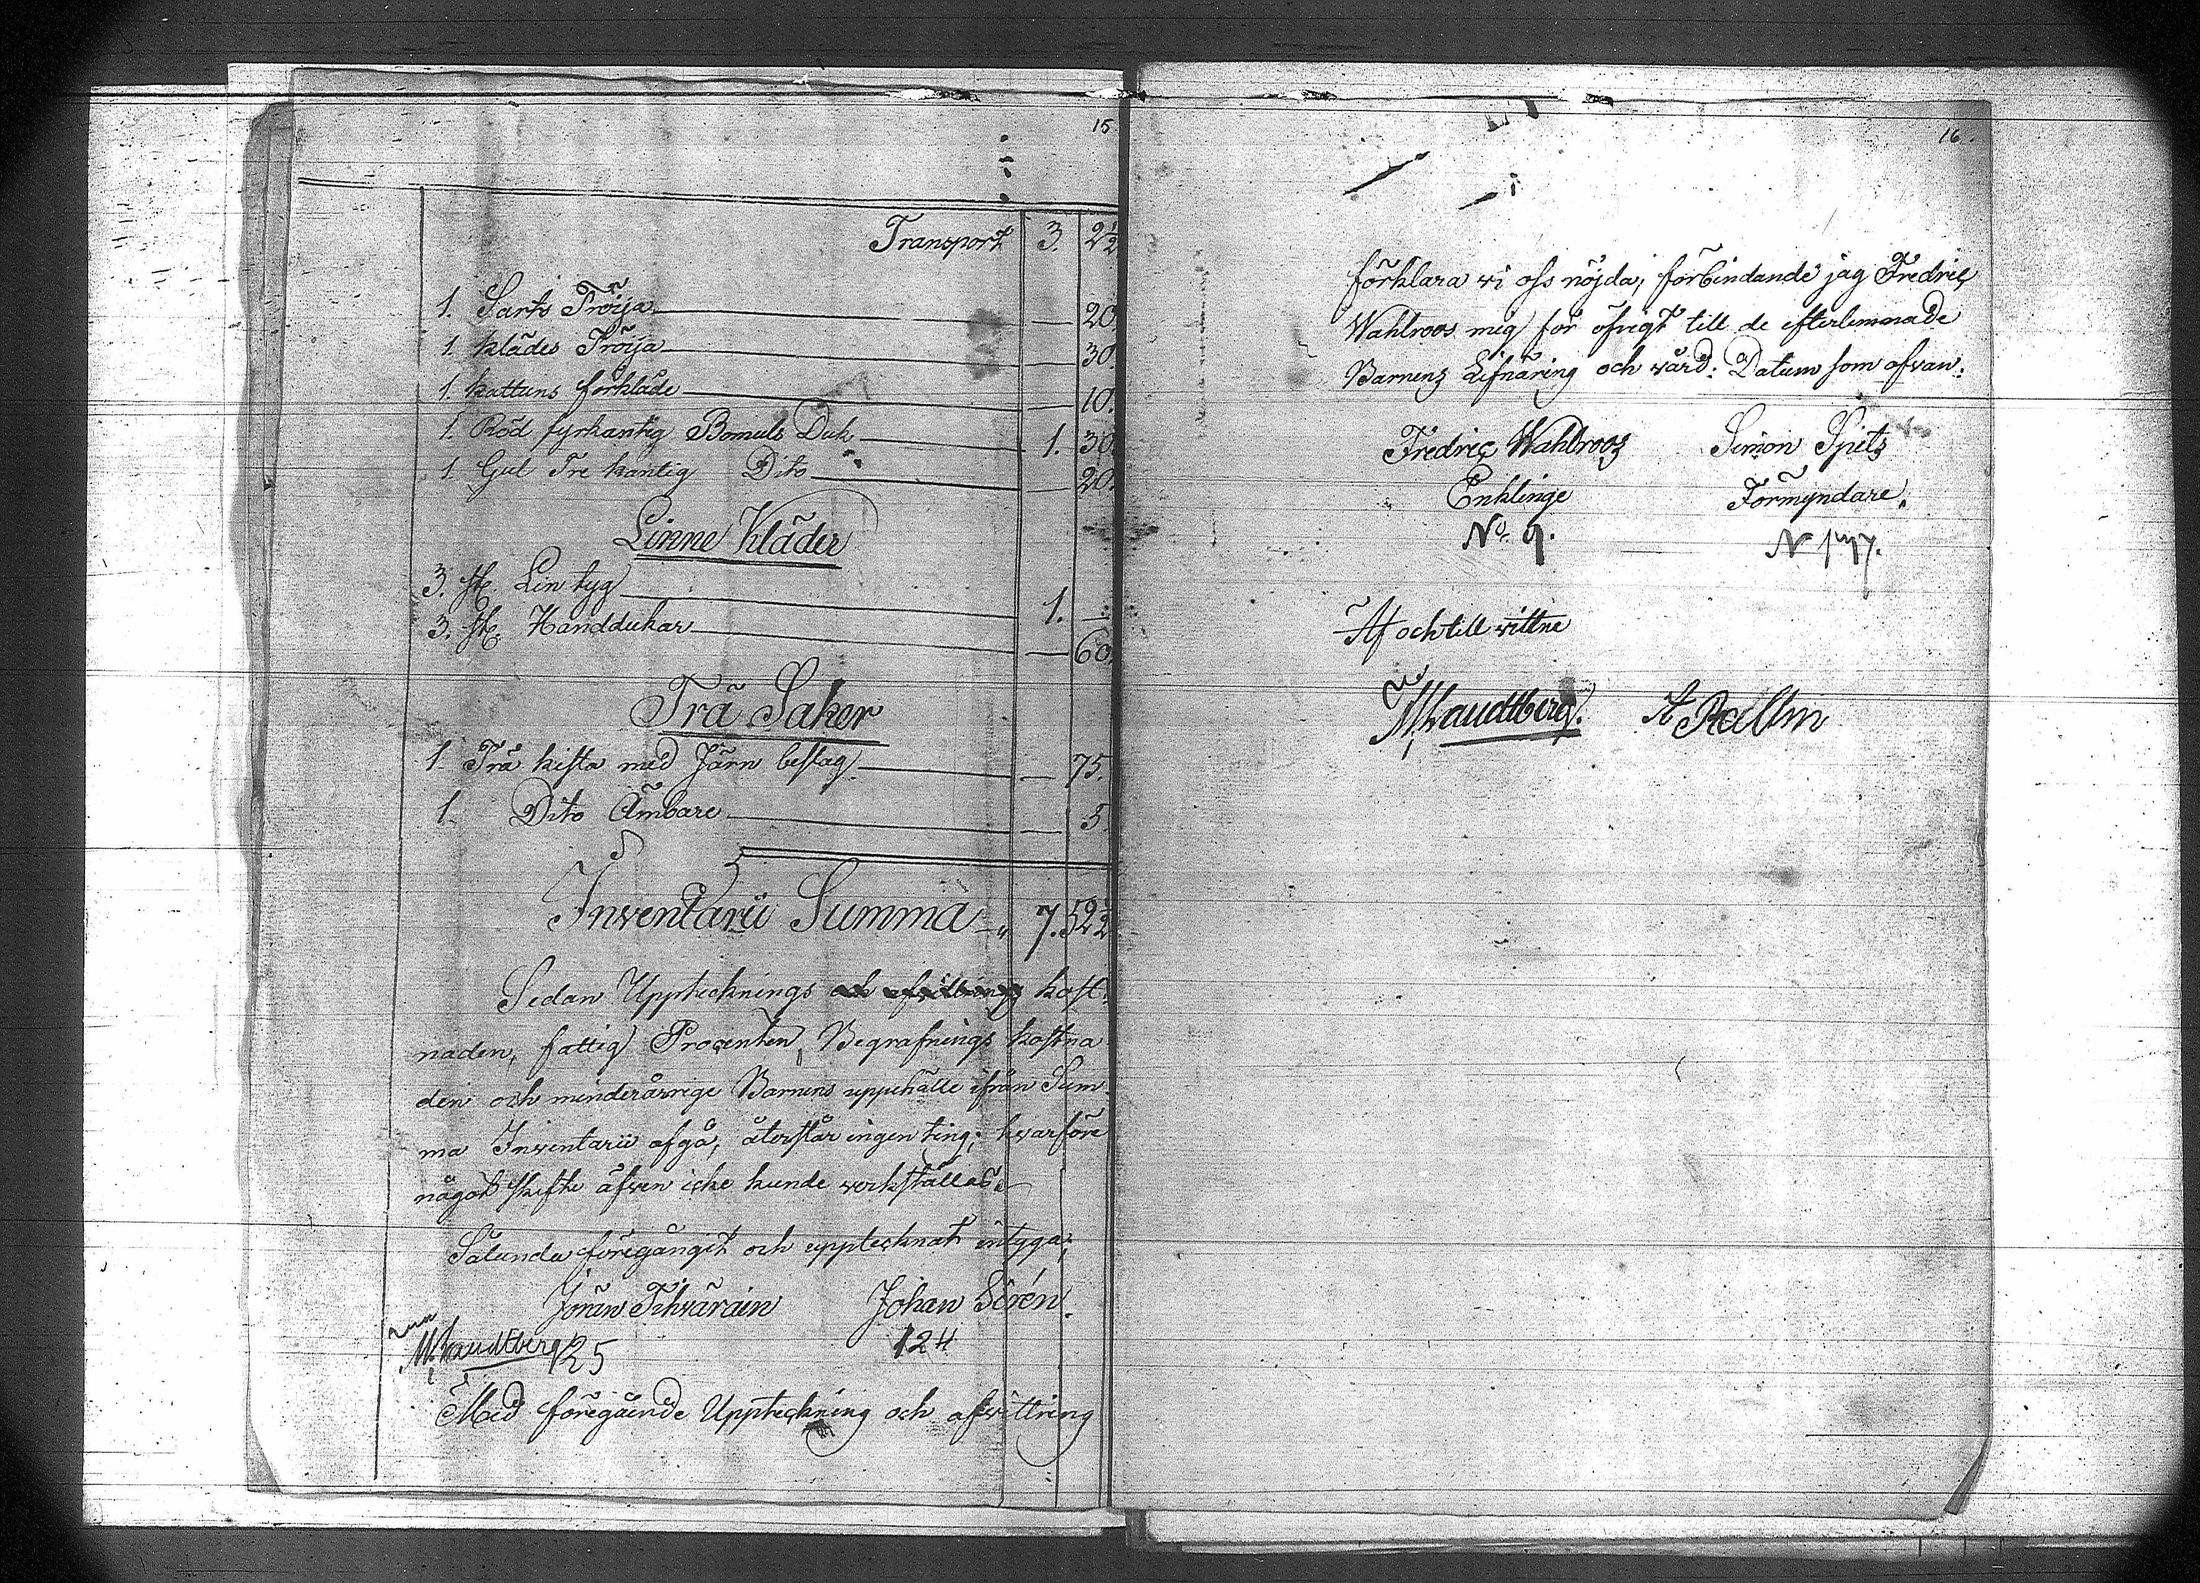 15
Transport 3. 2½
1. Sarts Tröija — 20.
1. klädes Tröija — 30.
1. kattuns förkläde — 10.
1. Röd fyrkantig Bomuls Duk — 1. 30.
1. Gul Tre kantig Dito — 20.
Linne Kläder
3. st. Lin tyg — 1. —
3. st. Handdukar — 60.
Trä Saker
1. Trä kista med Järn beslag — 75.
1. Dito Ämbare — 5.
Inventarii Summa 7. 52½
Sedan Upptecknings kost
naden, fattig Procenten, Begrafnings kostna
den och minderårige Barnens uppehälle ifrån Sum
ma Inventarii afgå, återstår ingen ting; hvarföre
något skifte äfven icke kunde verkställas.
Sålunda föregånget och upptecknat intyga;
Jöran Tihväräin Johan Sirén.
125 124
Med föregående Uppteckning och afvittring
16.
förklara vi oss nöjda, förbindande jag Fredric
Wahlroos mig för öfrigt till de efterlemnade
Barnens Lifnäring och vård. Datum som ofvan.
Fredric Wahlroos Simon Spets
Enklinge Förmyndare.
No 9. N
Af och till vittne